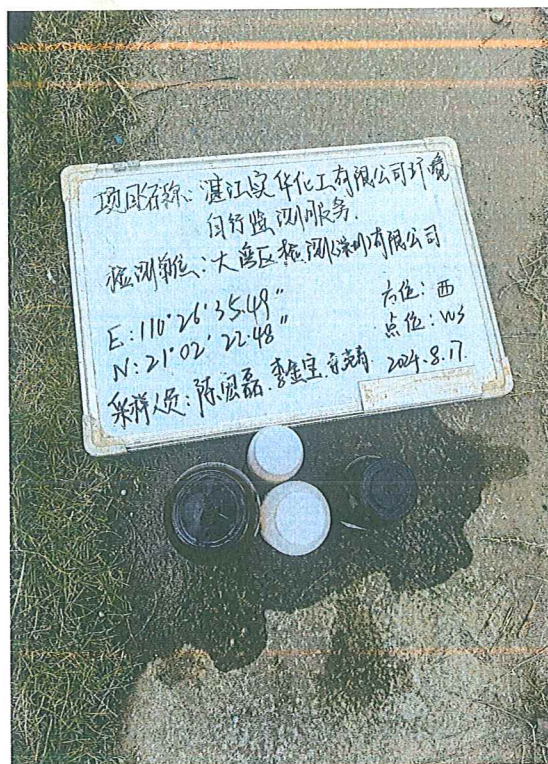 项目名称：湛江实华化工有限公司环境
自行监测服务.
检测单位：大湾区检测(深圳)有限公司
E：110°26′35.49″
方位：西
N：21°02′22.48″
点位：W3
采样人员：陈宏磊.李金宝.
2024.8.17.